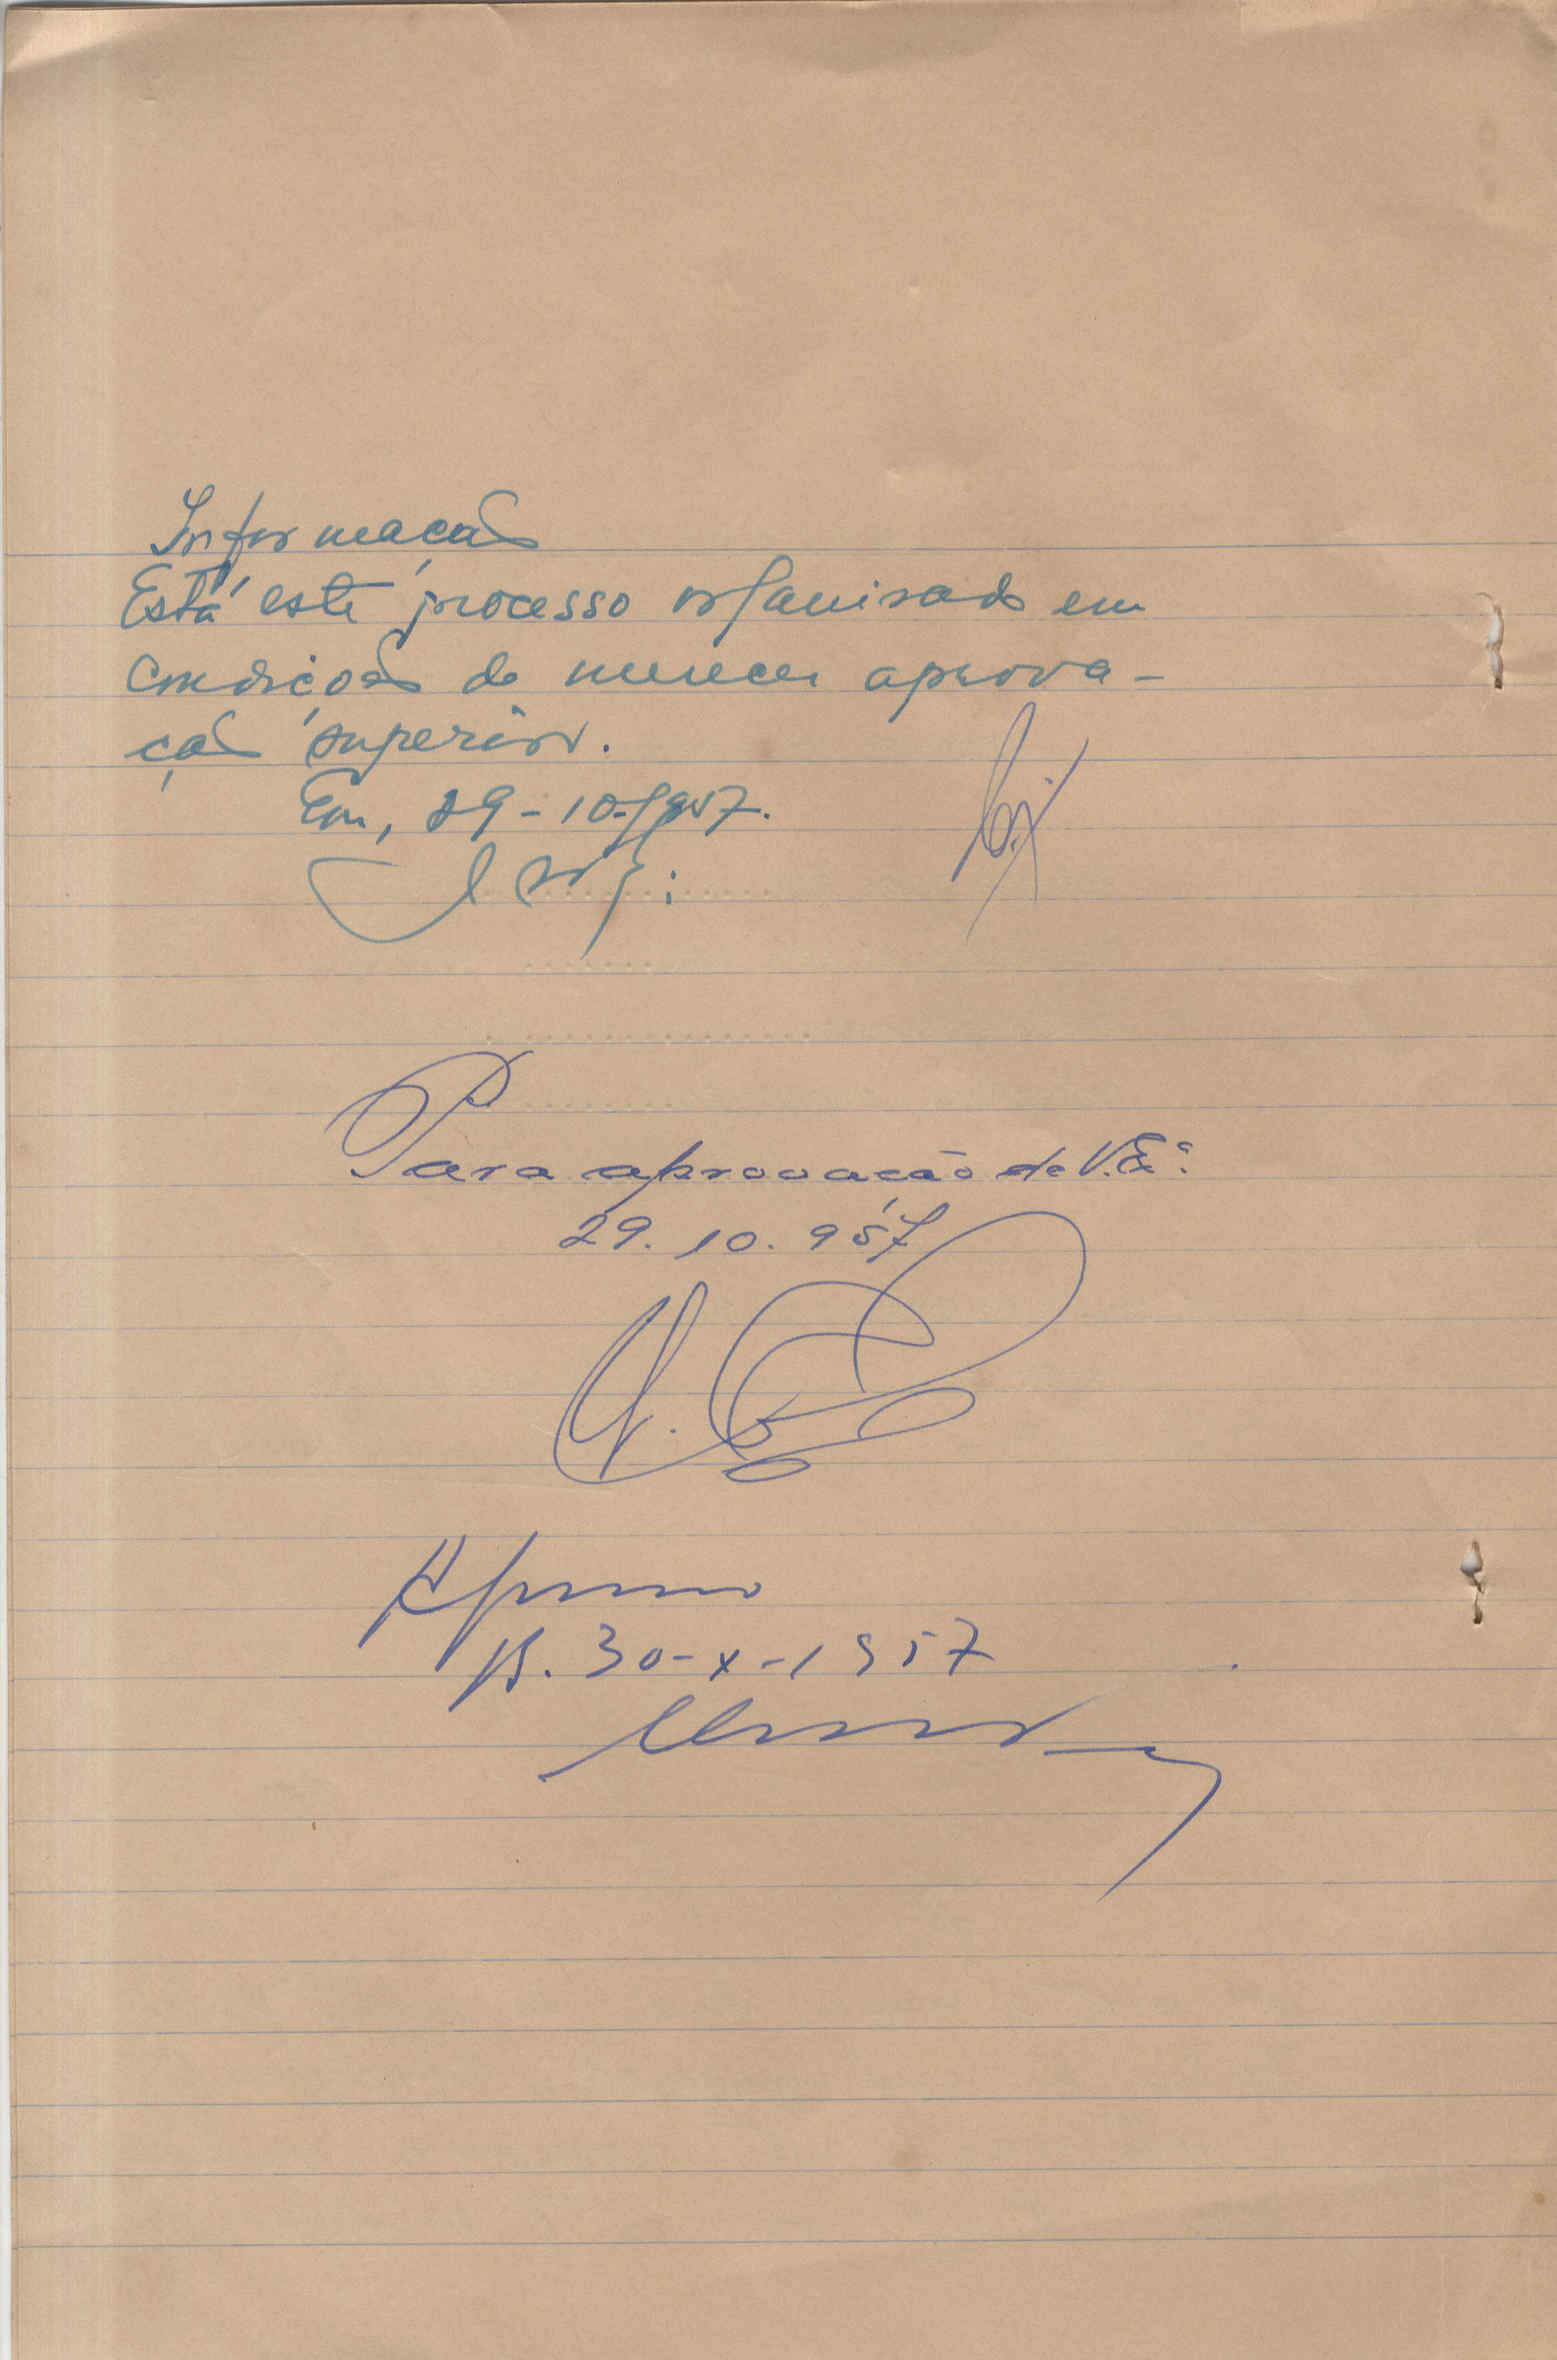 Informação
Está este processo organisado em
condições de merecer aprova-
ção superior.
Em, 29-10-1957.
Para aprovação de V. Exª.
29.10.957
Aprovo
30-X-1957